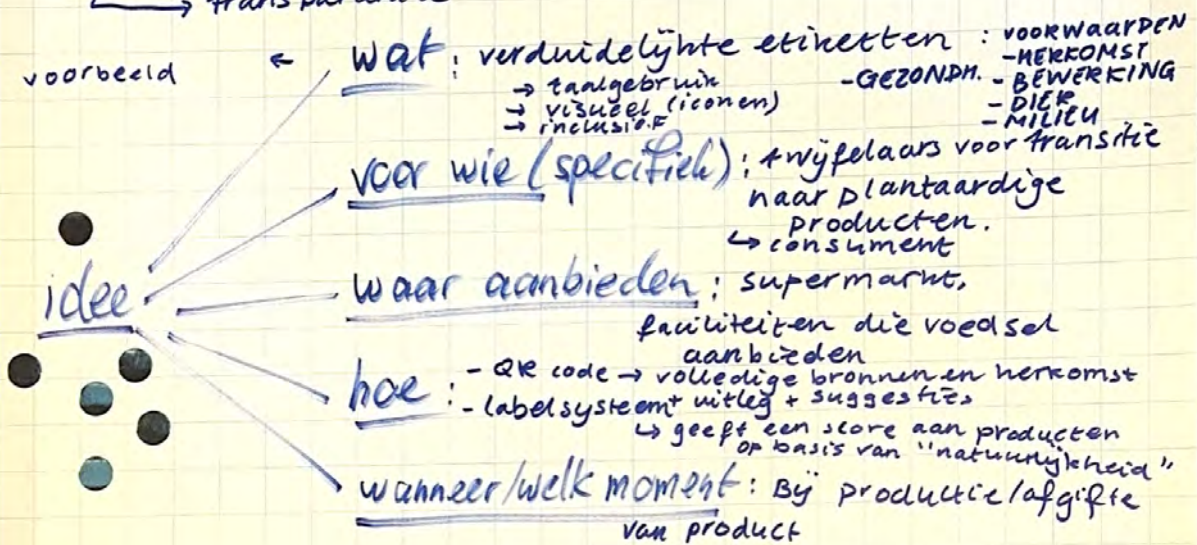 → transparantie
voorbeeld ← wat : verduidelijkte etiketten : voorwaarden
→ taalgebruik
→ visueel (iconen)
→ inclusief
-GEZONDH.
-HERKOMST
- BEWERKING
- DIER
- MILIEU
voor wie (specifiek) : twijfelaars voor transitie
naar plantaardige
producten.
↳ consument
idee
waar aanbieden : supermarkt,
faciliteiten die voedsel
aanbieden
hoe : - QR code → volledige bronnen en herkomst
- labelsysteem + uitleg + suggesties
↳ geeft een score aan producten
op basis van "natuurlijkheid"
wanneer/welk moment : Bij productie/afgifte
van product